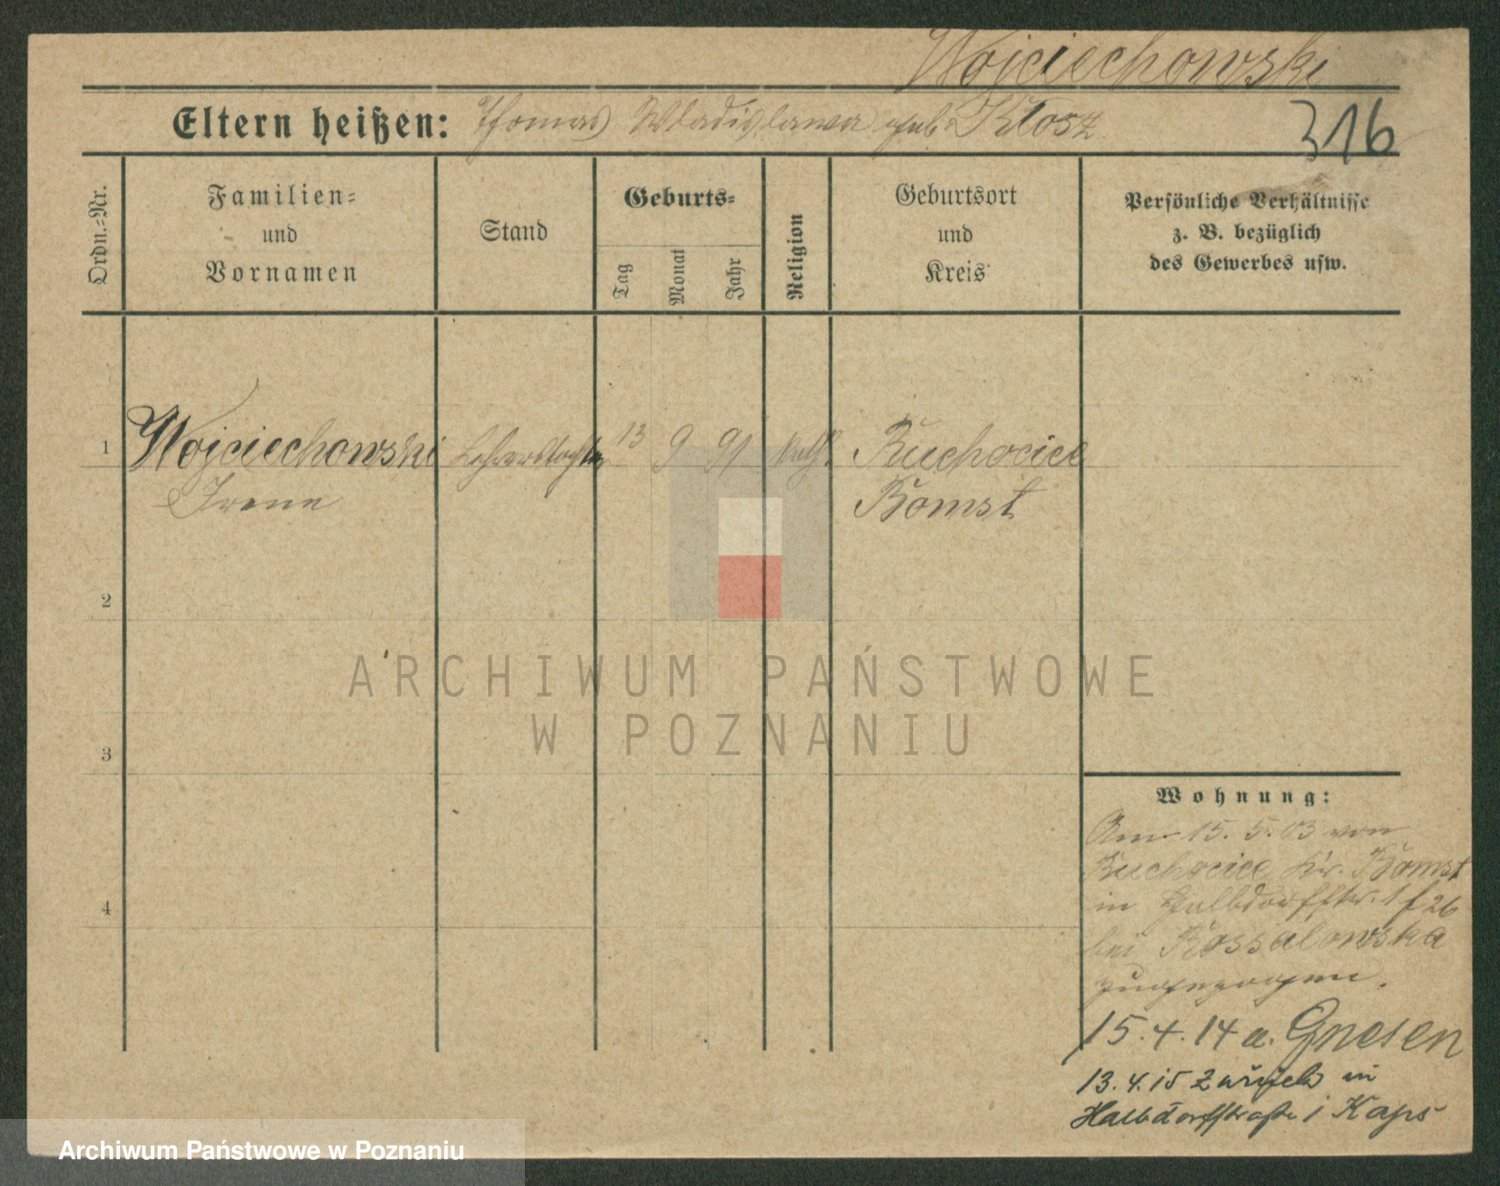 Wojciechowski
Eltern heißen: Thomas Wladislawa geb. Klosz
316
Ordn.-Nr.
Familien-
und
Vornamen
Stand
Geburts-
Tag
Monat
Jahr
Religion
Geburtsort
und
Kreis
Persönliche Verhältnisse
z. B. bezüglich
des Gewerbes usw.
1 Wojciechowski Lehrerstochter 13 9 91 kath. Ruchocice
Irene Bomst
2
3
4
Wohnung:
Am 15. 5. 03 von
Ruchocice Kr. Bomst
in Halbdorfstr. 26
bei Kossalowska
zugezogen.
15.4.14 a. Gnesen
13.4.15 zurück in
Halbdorfstraße
ARCHIWUM PAŃSTWOWE
W POZNANIU
Archiwum Państwowe w Poznaniu